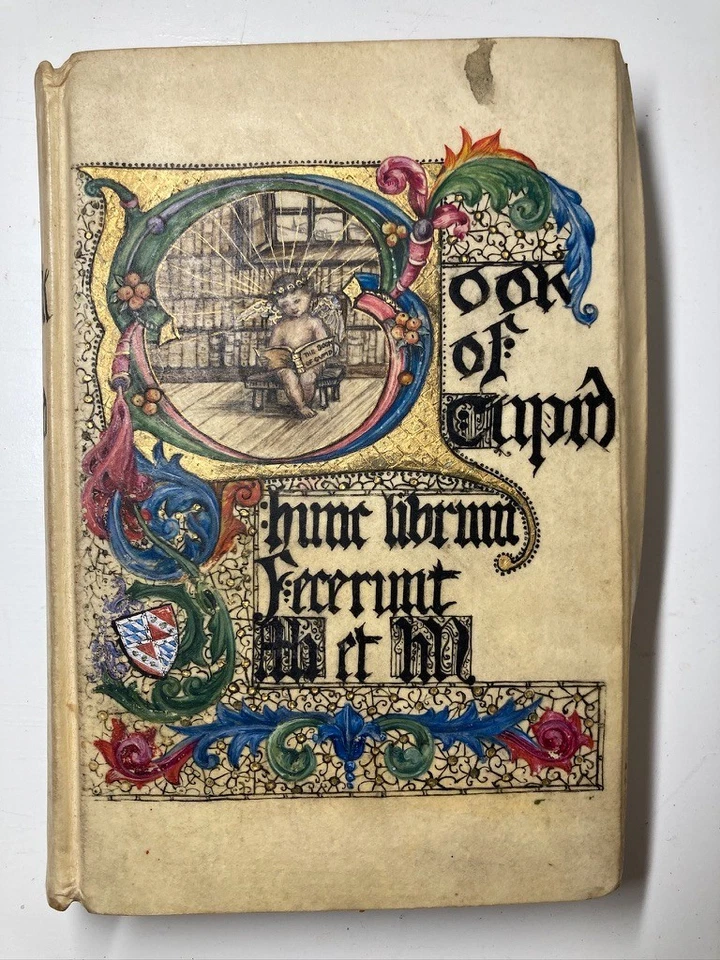 Book
of
Cupid
THE BOOK
OF CUPID
:hunc librum
fecerunt
et